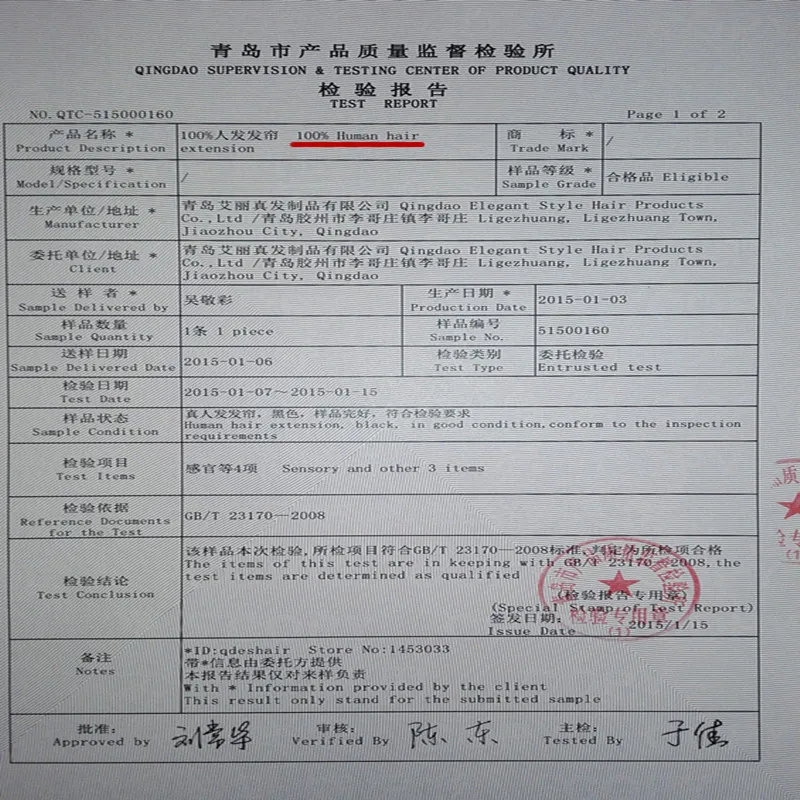 青岛市产品质量监督检验所
QINGDAO SUPERVISION & TESTING CENTER OF PRODUCT QUALITY
检验报告
TEST REPORT
NO. QTC-515000160 Page 1 of 2
产品名称 * 100%人发发帘 100% Human hair 商 标 * /
Product Description extension Trade Mark
规格型号 * / 样品等级 * 合格品 Eligible
Model/Specification Sample Grade
生产单位/地址 * 青岛艾丽真发制品有限公司 Qingdao Elegant Style Hair Products
Manufacturer Co.,Ltd /青岛胶州市李哥庄镇李哥庄 Ligezhuang, Ligezhuang Town,
Jiaozhou City, Qingdao
委托单位/地址 * 青岛艾丽真发制品有限公司 Qingdao Elegant Style Hair Products
Client Co.,Ltd /青岛胶州市李哥庄镇李哥庄 Ligezhuang, Ligezhuang Town,
Jiaozhou City, Qingdao
送 样 者 * 吴敬彩 生产日期 * 2015-01-03
Sample Delivered by Production Date
样品数量 1条 1 piece 样品编号 51500160
Sample Quantity Sample No.
送样日期 2015-01-06 检验类别 委托检验
Sample Delivered Date Test Type Entrusted test
检验日期 2015-01-07～2015-01-15
Test Date
样品状态 真人发发帘，黑色，样品完好，符合检验要求
Sample Condition Human hair extension, black, in good condition,conform to the inspection
requirements
检验项目 感官等4项 Sensory and other 3 items
Test Items
检验依据 GB/T 23170—2008
Reference Documents
for the Test
该样品本次检验,所检项目符合GB/T 23170—2008标准,判定为所检项合格
检验结论 The items of this test are in keeping with GB/T 23170—2008,the
Test Conclusion test items are determined as qualified
(检验报告专用章)
(Special Stamp of Test Report)
签发日期:
Issue Date 2015/1/15
检验专用章
(1)
备注 *ID:qdeshair Store No:1453033
Notes 带*信息由委托方提供
本报告结果仅对来样负责
With * Information provided by the client
This result only stand for the submitted sample
批准: 审核: 陈东 主检: 于佳
Approved by Verified By Tested By